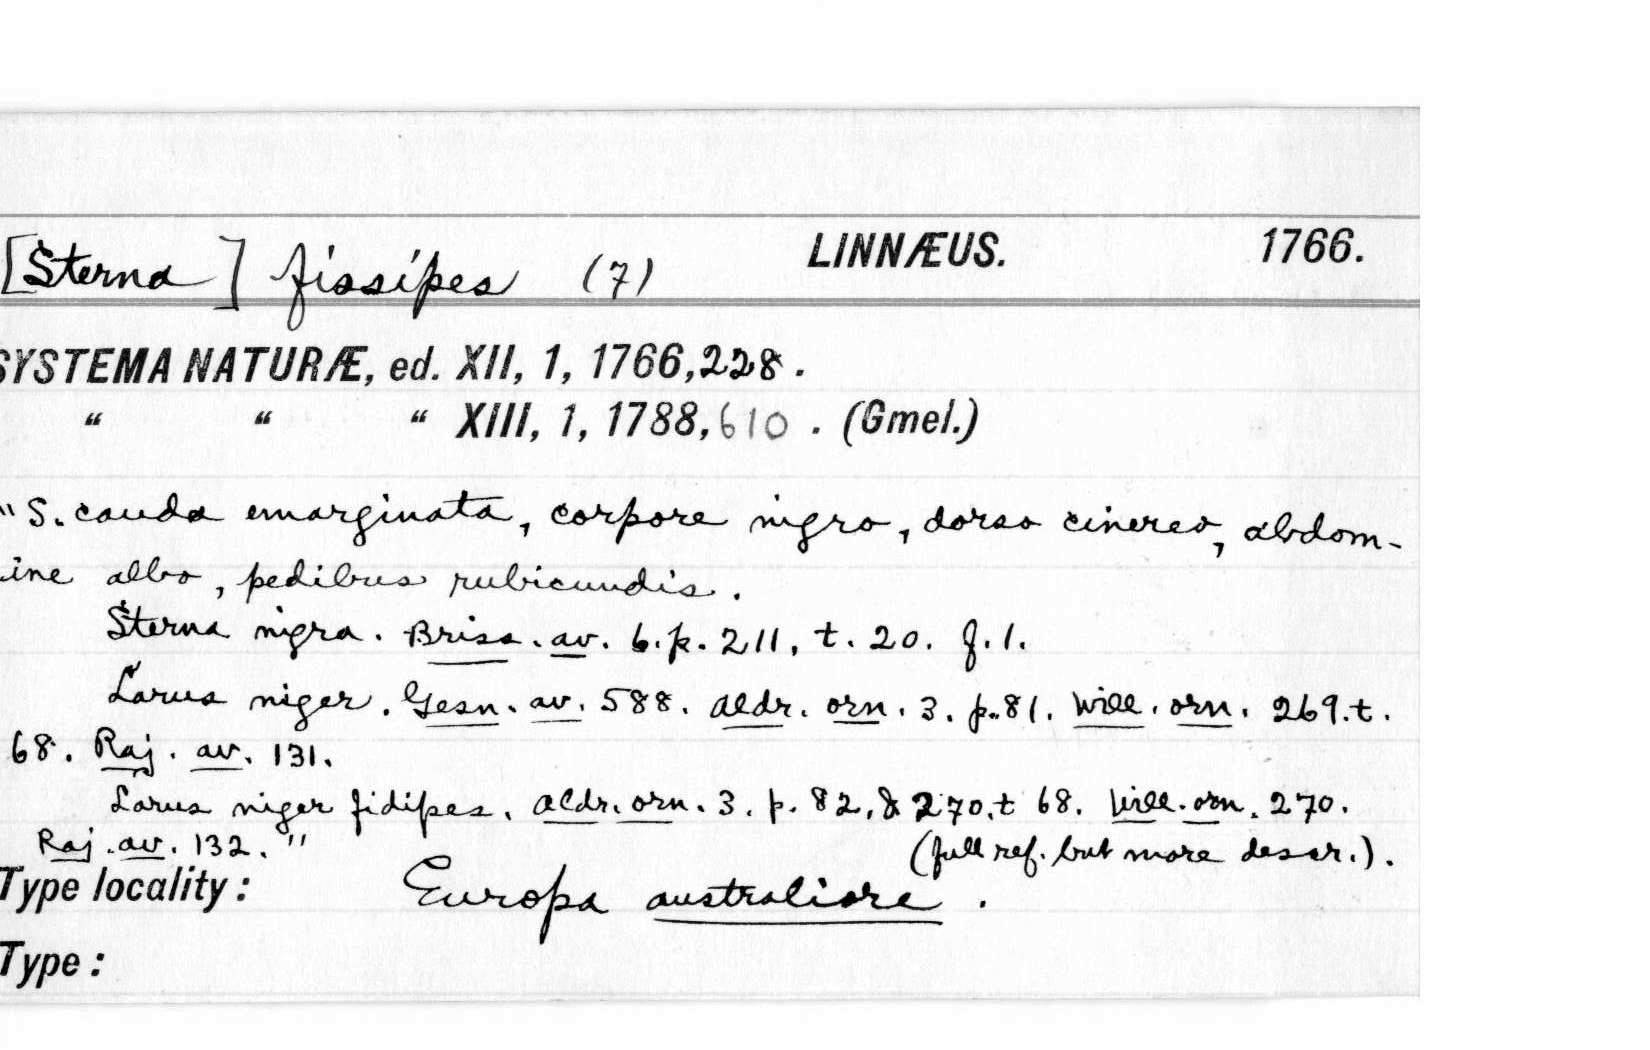 [Sterna] fissipes (7) LINNÆUS. 1766.
SYSTEMA NATURÆ, ed. XII, 1, 1766, 228.
“ “ “ XIII, 1, 1788, 610. (Gmel.)
"S. cauda emarginata, corpore nigro, dorso cinereo, abdom-
ine albo, pedibus rubicundis.
Sterna nigra. Briss. av. 6. p. 211, t. 20. f. 1.
Larus niger. Gesn. av. 588. Aldr. orn. 3. p. 81. Will. orn. 269. t.
68. Raj. av. 131.
Larus niger fidipes. Aldr. orn. 3. p. 82, & 270. t 68. Will. orn. 270.
Raj. av. 132."
(full ref. but more descr.).
Type locality: Europa australiore.
Type: